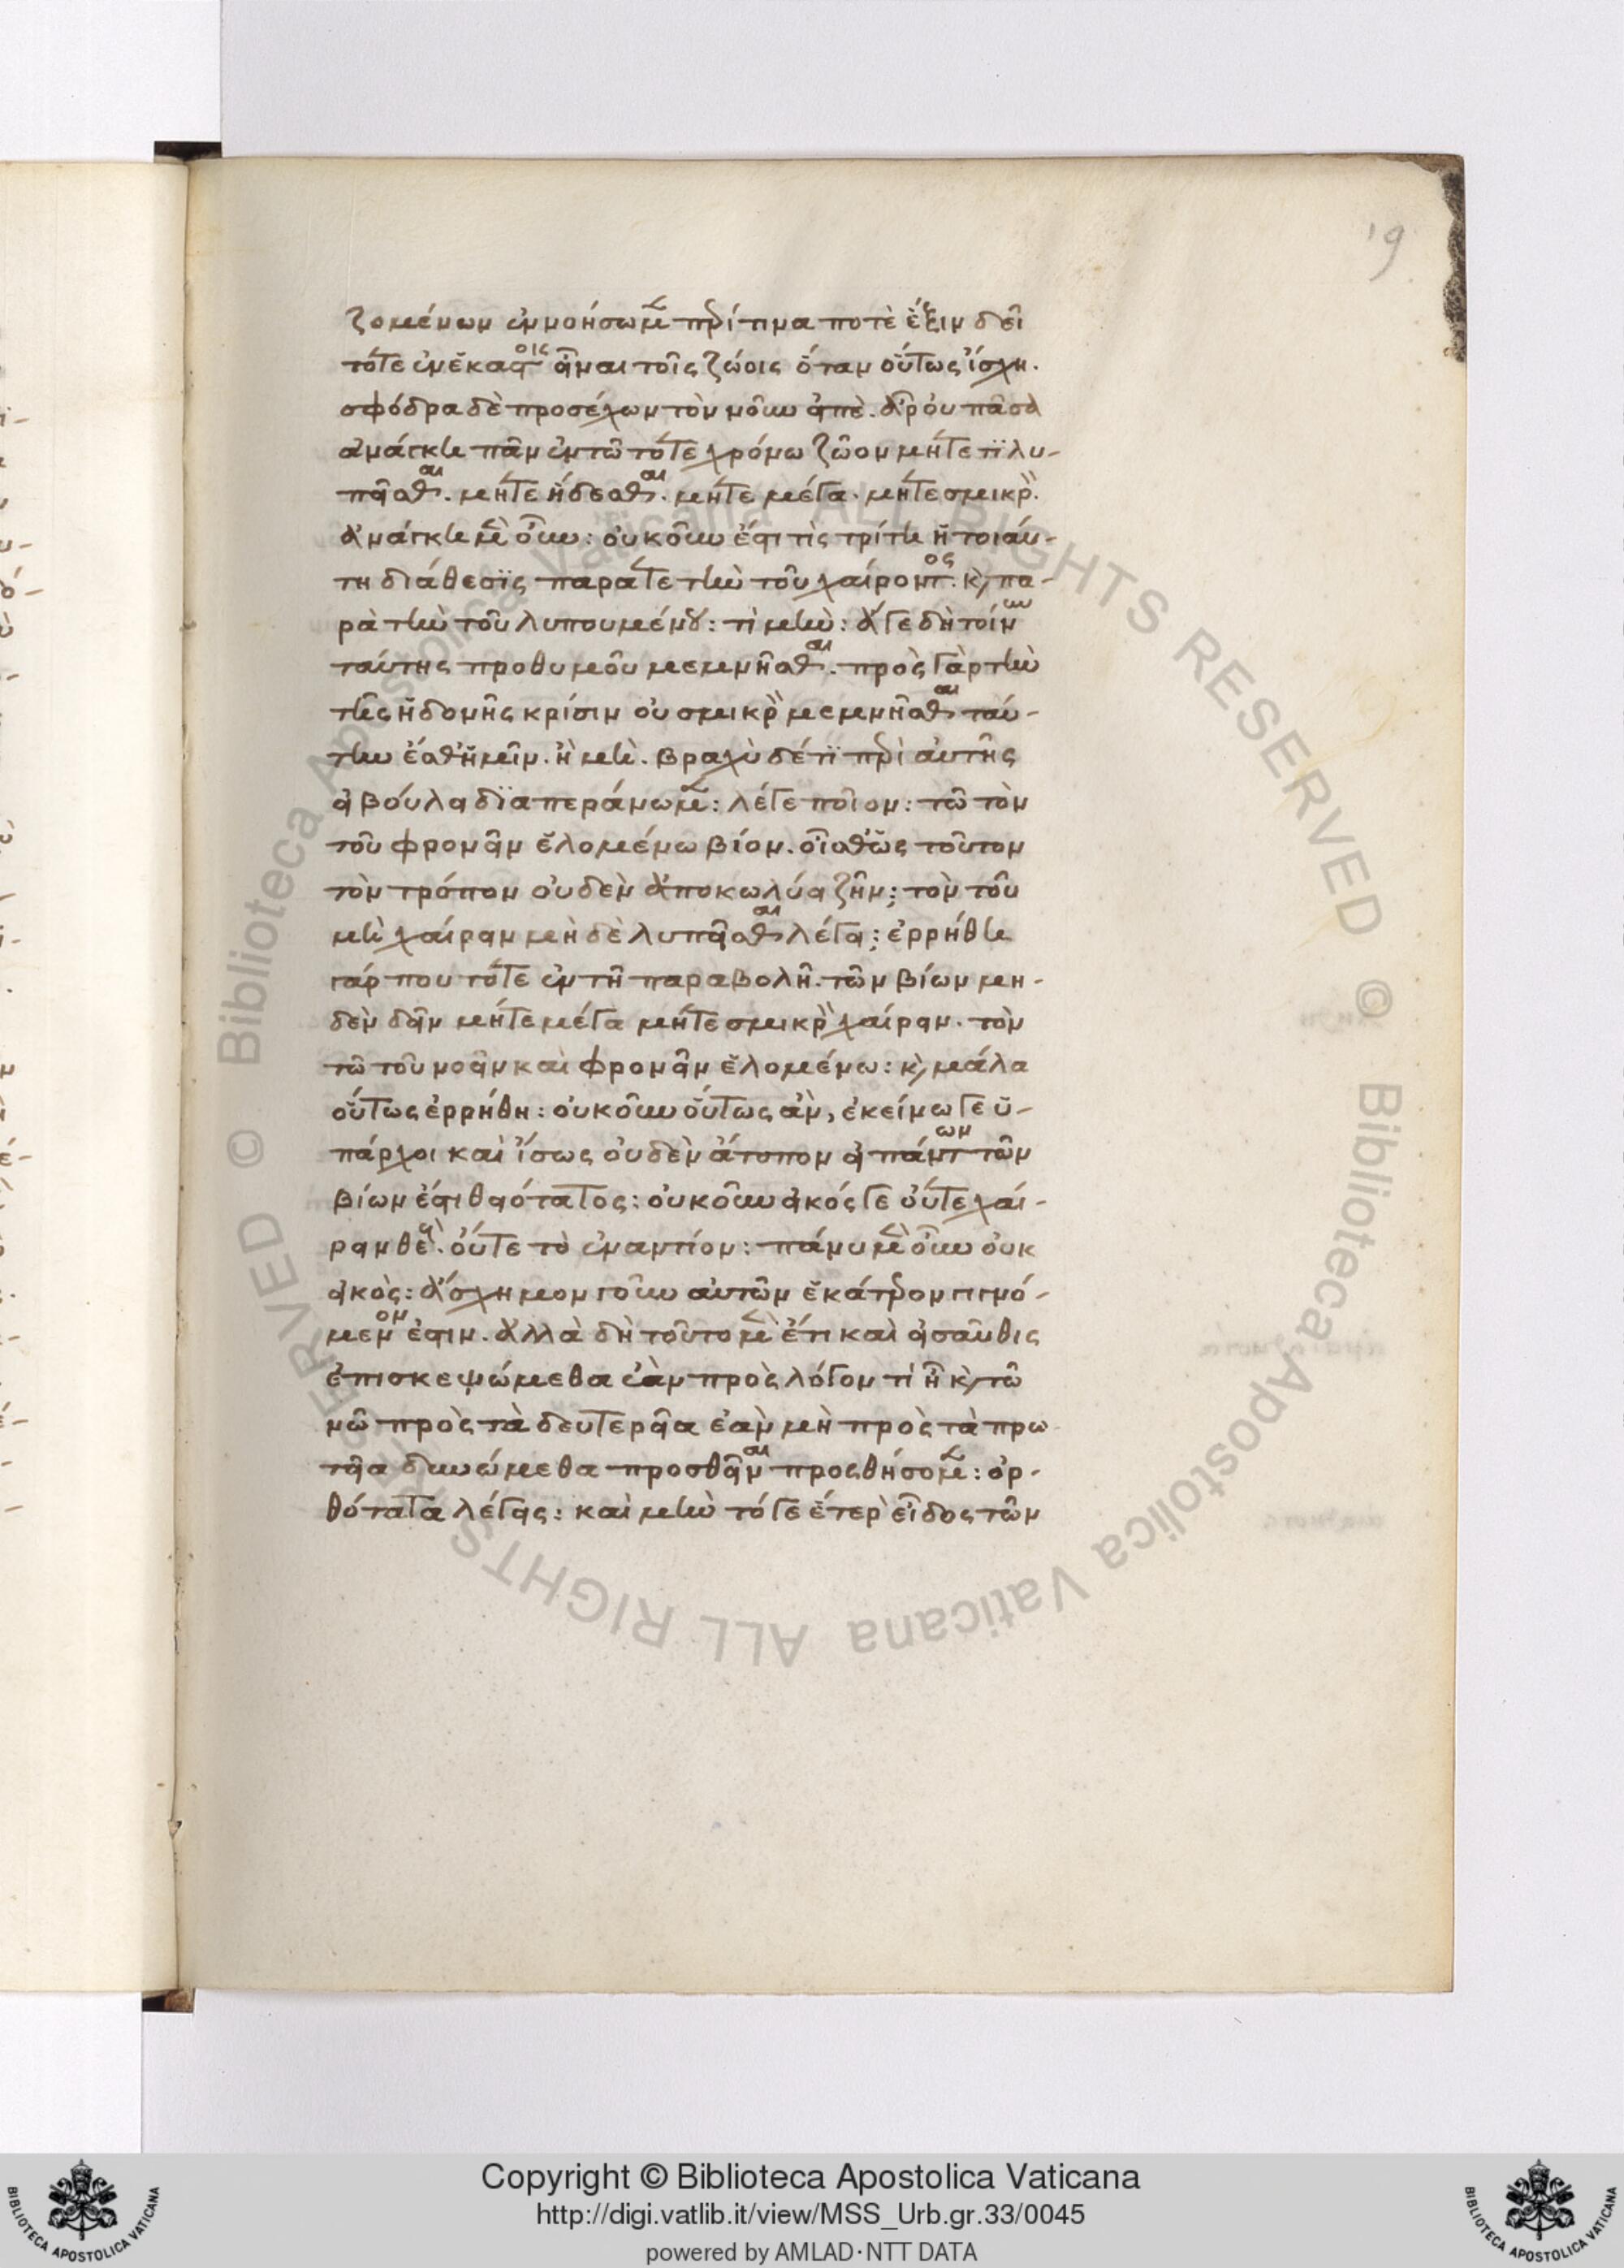 19
ζομένων ἐννοήσωμεν περί τινα ποτὲ ἕξιν δεῖ
τότε ἐν ἑκάστοις εἶναι τοῖς ζώοις ὅταν οὕτως ἴσχη.
σφόδρα δὲ προσέχων τὸν νοῦν εἰπὲ. ἆρ' οὐ πᾶσα
ἀνάγκη πᾶν ἐν τῶ τότε χρόνω ζῶον μήτέ τϊ λυ-
πεῖσθαι. μήτε ἥδεσθαι. μήτε μέγα. μήτε σμικρὸν.
ἀνάγκη μὲν οὖν: οὐκοῦν ἔστι τὶς τρίτη ἡ τοιάυ-
τη διάθεσϊς παρά τε τὴν τοῦ χαίροντος. κὶ πα-
ρὰ τὴν τοῦ λυπουμένου: τί μὴν: ἄγε δὴ τοίνυν
ταύτης προθυμοῦ μεμνῆσθαι. πρὸς γὰρ τὴν
τῆς ἡδονῆς κρίσιν οὐ σμικρὸν μεμνῆσθαι ταύ-
την ἔσθ' ἡμῖν. ἢ μὴ. βραχὺ δέ τϊ περὶ αὐτῆς
εἰ βούλει δϊαπεράνωμεν: λέγε ποῖον: τῶ τὸν
τοῦ φρονεῖν ἑλομένω βίον. οἶσθ' ὡς τοῦτον
τὸν τρόπον οὐδὲν ἀποκωλύει ζῆν; τὸν τοῦ
μὴ χαίρειν μὴ δὲ λυπεῖσθαι λέγει; ἐρρήθη
γάρ που τότε ἐν τῆ παραβολῆ τῶν βίων μη-
δὲν δεῖν μήτε μέγα μήτε σμικρὸν χαίρειν. τὸν
τῶ τοῦ νοεῖν καὶ φρονεῖν ἑλομένω: κὶ μάλα
οὕτως ἐρρήθη: οὐκοῦν οὕτως ἀν, ἐκείνω γε ὑ-
πάρχοι καὶ ἴσως οὐδὲν ἄτοπον εἰ πάντων τῶν
βίων ἐστι θειότατος: οὐκοῦν εἰκός γε οὔτε χαί-
ρειν θεὸν. οὔτε τὸ ἐναντίον: πάνυ μὲν οὖν οὐκ
εἰκὸς: ἄσχημον γοῦν αὐτῶν ἑκάτερον γιγνό-
μενον ἐστιν. ἀλλὰ δὴ τοῦτο μὲν ἔτι καὶ εἰσαῦθις
ἐπισκεψώμεθα ἐὰν πρὸς λόγον τί ἦ κὶ τῶ
νῶ πρὸς τὰ δευτερεῖα ἐὰν μὴ πρὸς τὰ πρω
τεῖα δυνώμεθα προσθεῖναι προςθήσομεν: ὀρ-
θότατα λέγεις: καὶ μὴν τό γε ἕτερον εἶδος τῶν
Copyright © Biblioteca Apostolica Vaticana
http://digi.vatlib.it/view/MSS_Urb.gr.33/0045
powered by AMLAD·NTT DATA
© Biblioteca Apostolica Vaticana ALL RIGHTS RESERVED © Biblioteca Apostolica Vaticana ALL RIGHTS RESERVED
BIBLIOTECA APOSTOLICA VATICANA
BIBLIOTECA APOSTOLICA VATICANA